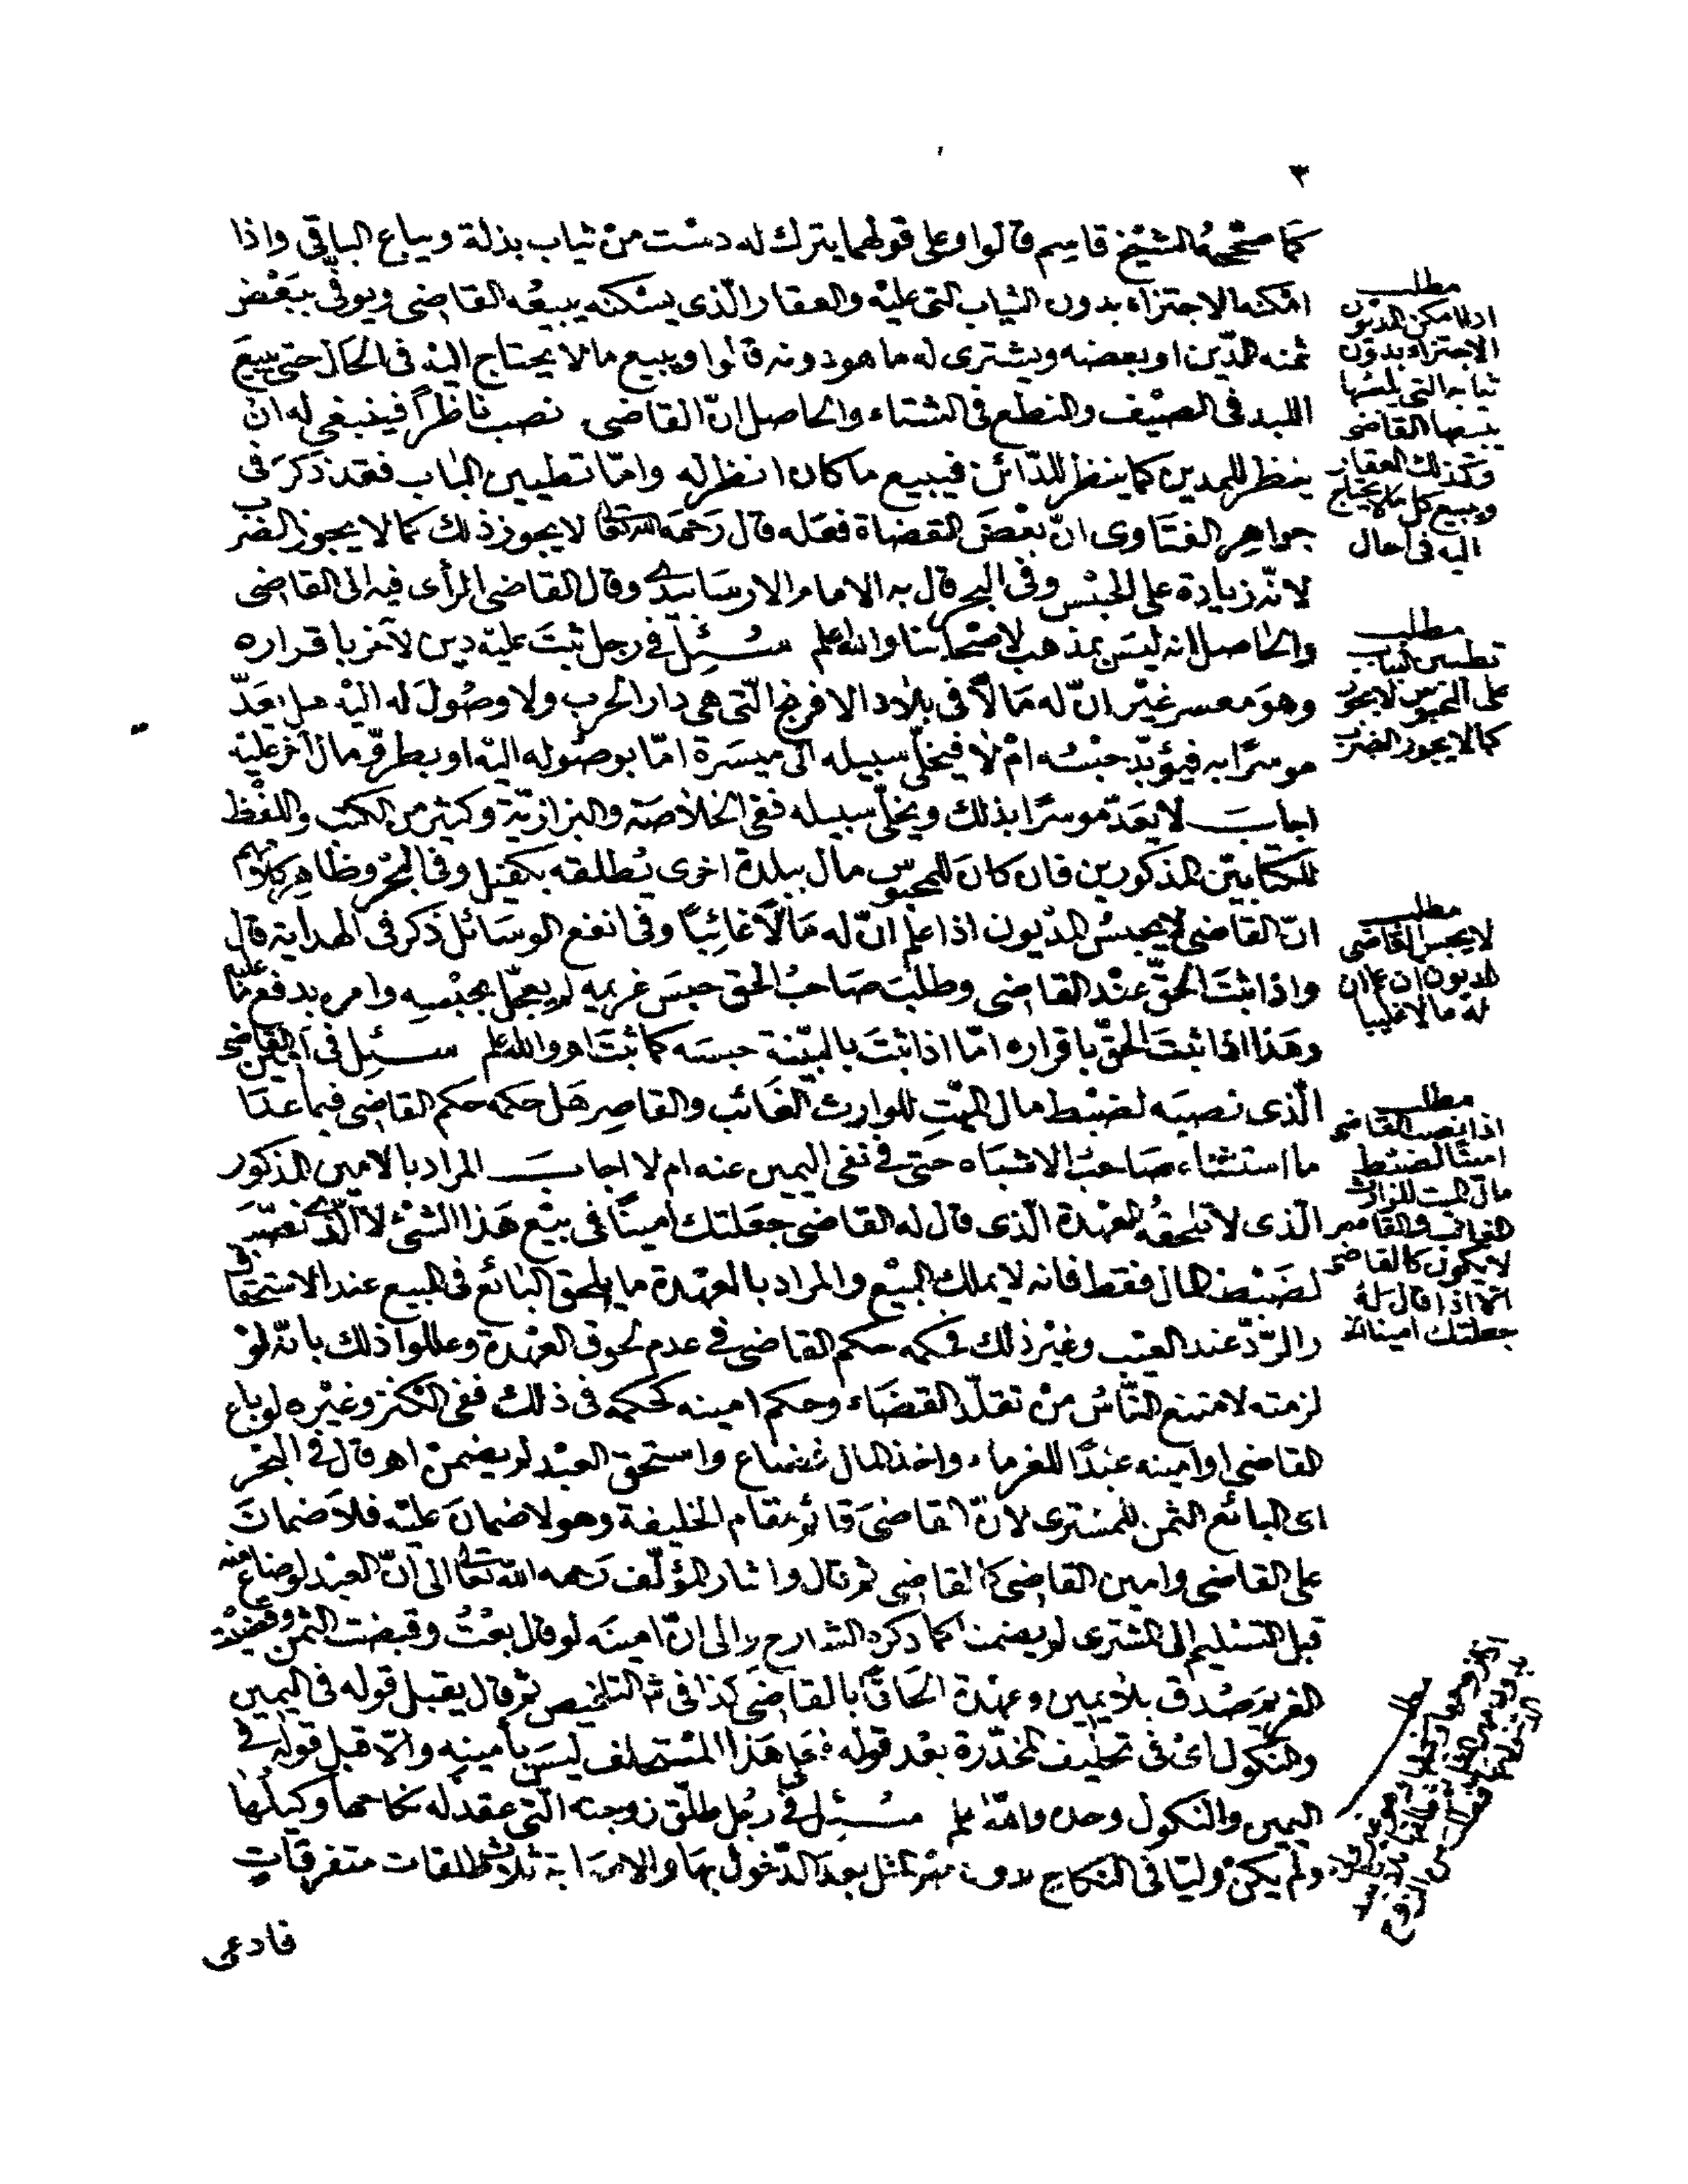 ٣
كما صححه الشيخ قاسم قالوا وعلى قولهما يترك له دست من ثياب بذلة ويباع الباقي واذا
امكنه الاجتزاء بدون الثياب التى عليه والعقار الذى يسكنه يبيعه القاضى ويوفى ببعض
ثمنه الدين او بعضه ويشترى له ما هو دونه قالوا ويبيع ما لا يحتاج اليه فى الحال حتى يبيع
اللبد فى الصيف والنطع فى الشتاء والحاصل ان القاضى نصب ناظرا فينبغى له ان
ينظر للمدين كما ينظر للدائن فيبيع ما كان انظر له واما تطيين الباب فقد ذكر فى
جواهر الفتاوى ان بعض القضاة فعله قال رحمه الله تعالى لا يجوز ذلك كما لا يجوز الضرب
لانه زيادة على الحبس وفى البحر قال به الامام الارسابندى وقال القاضى الرأى فيه الى القاضى
والحاصل انه ليس بمذهب لاصحابنا والله اعلم سئل فى رجل ثبت عليه دين لآخر باقراره
وهو معسر غير ان له مالا فى بلاد الافرنج التى هى دار الحرب ولا وصول له اليه هل يعد
موسرا به فيؤبد حبسه ام لا فيخلى سبيله الى ميسرة اما بوصوله اليه او بطرو مال آخر عليه
اجاب لا يعد موسرا بذلك ويخلى سبيله ففى الخلاصة والبزازية وكثير من الكتب واللفظ
للكتابين المذكورين فان كان للمحبوس مال ببلدة اخرى يطلقه بكفيل وفى البحر وظاهر كلامهم
ان القاضى لا يحبس المديون اذا علم ان له مالا غائبا وفى انفع الوسائل ذكر فى الهداية قال
واذا ثبت الحق عند القاضى وطلب صاحب الحق حبس غريمه لم يعجل بحبسه وامره بدفع ما عليه
وهذا اذا ثبت الحق باقراره اما اذا ثبت بالبينة حبسه كما ثبت اه والله اعلم سئل فى امين القاضى
الذى نصبه لضبط مال الميت للوارث الغائب والقاصر هل حكمه حكم القاضى فيما عدا
ما استثناه صاحب الاشباه حتى فى نفى اليمين عنه ام لا اجاب المراد بالامين المذكور
الذى لا تلحقه العهدة الذى قال له القاضى جعلتك امينا فى بيع هذا الشئ لا الذى نصب
لضبط المال فقط فانه لا يملك البيع والمراد بالعهدة ما يلحق البائع فى المبيع عند الاستحقاق
والرد عند العيب وغير ذلك فحكمه حكم القاضى فى عدم لحوق العهدة وعللوا ذلك بانه لو
لزمته لامتنع الناس من تقلد القضاء وحكم امينه كحكمه فى ذلك ففى الكنز وغيره لو باع
القاضى او امينه عبدا للغرماء واخذ المال فضاع واستحق العبد لم يضمن اه قال فى البحر
اى البائع الثمن للمشترى لان القاضى قائم مقام الخليفة وهو لا ضمان عليه فلا ضمان
على القاضى وامين القاضى كالقاضى ثم قال واشار المؤلف رحمه الله تعالى الى ان العبد لو ضاع منه
قبل التسليم الى المشترى لم يضمنا كما ذكره الشارح والى ان امينه لو قال بعت وقبضت الثمن وقضيت
الغريم صدق بلا يمين وعهدة الحاقا بالقاضى كذا فى شرح التلخيص ثم قال يقبل قوله فى اليمين
والنكول اى فى تحليف المخدرة بعد قوله فعلى هذا المستحلف ليس بأمينه والا قبل قوله فى
اليمين والنكول وحده والله اعلم سئل فى رجل طلق زوجته التى عقد له نكاحها وكيلها
ولم يكن وليا فى النكاح بدون مهر المثل بعد الدخول بها والاصابة ثلاث طلقات متفرقات
فادعى
مطلب
اذا امكن المديون
الاجتزاء بدون
ثيابه التى يلبسها
يبيعها القاضى
وكذلك العقار
ويبيع كل ما لا يحتاج
اليه فى الحال
مطلب
تطيين الباب
على المحبوس لا يجوز
كما لا يجوز الضرب
مطلب
لا يحبس القاضى
المديون ان علم ان
له مالا غائبا
مطلب
اذا نصب القاضى
امينا لضبط
مال الميت للوارث
الغائب والقاصر
لا يكون كالقاضى
الا اذا قال له
جعلتك امينا الخ